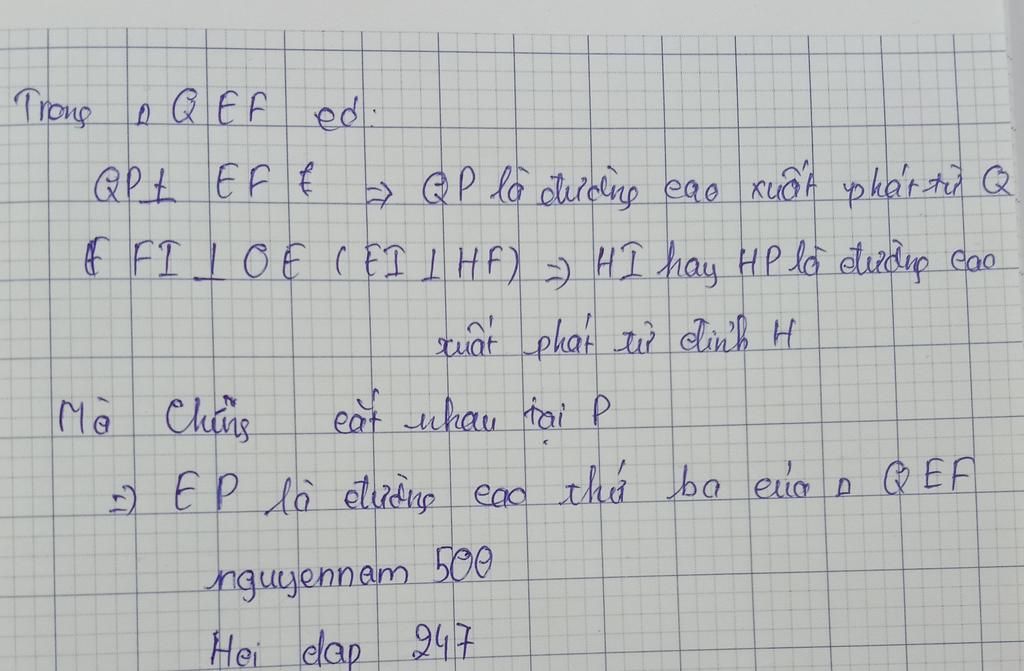 Trong Δ QEF có:
QP⊥ EF ⇒ QP là đường cao xuất phát từ Q
FI ⊥ OE (EI ⊥ HF) ⇒ HI hay HP là đường cao
xuất phát từ đỉnh H
Mà Chúng cắt nhau tại P
⇒ EP là đường cao thứ ba của Δ QEF
nguyennam 500
Hoi dap 247